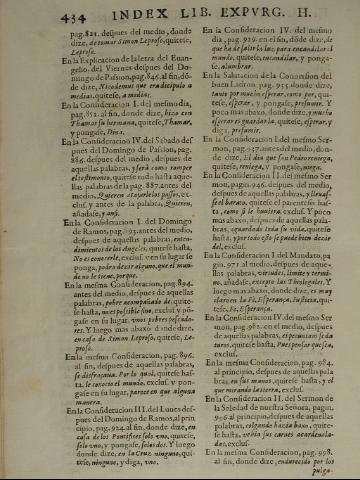 434 INDEX LIB. EXPVRG. H.
pag.821. despues del medio, donde
dize, de tomar Simon Leproso, quitese,
Leproso.
En la Explicacion de la letra del Euan-
gelio, del Viernes despues del Do-
mingo de Passion, pag.846. al fin, dõ-
de dize, Nicodemus que era discipulo a
medias, quitese, a medias.
En la Consideracion I. del mesmo dia,
pag.851. al fin, donde dize, hizo con
Thamar su hermana, quitese, Thamar,
y pongase, Dina.
En la Consideracion IV. del Sabado des
pues del Domingo de Passion, pag.
885. despues del medio, despues de
aquellas palabras, y sera como romper
el testamento, quitese todo hasta aque-
llas palabras de la pag.887. antes del
medio, Quieren atajarle los passos, ex-
clus. y antes de la palabra, Quieren,
añadase, y ansi.
En la Consideracion I. del Domingo
de Ramos, pag.893. antes del medio,
despues de aquellas palabras, enten-
dimientos de los Angeles, quitese hasta,
No es conocerle, exclus. y en su lugar se
ponga, podra dezir alguno, que el mun-
do no le tiene, porque.
En la mesma Consideracion, pag.894.
antes del medio, despues de aquellas
palabras, pobre acompañado de, quite-
se hasta, no es possible sino, exclus. y põ-
gase en su lugar, unos pobres pescado-
res. Y luego mas abaxo donde dize,
en casa de Simon Leproso, quitese, Le-
proso.
En la mesma Consideracion, pag.896.
al fin, despues de aquellas palabras,
se disfraçaua. Por lo qual, quitese has-
ta, le conocio el mundo, exclus. y pon-
gase en su lugar, parece en que alguna
manera.
En la Consideracion III. del Lunes des-
pues del Domingo de Ramos, al prin
cipio, pag.924. al fin, donde dize, en
casa de los Pontifices solo vno, quitese,
solo vno, y pongase, solo dos. Y luego
donde dize, en la Cruz ninguno, qui-
tese, ninguno, y diga, vno.
En la Consideracion IV. del mesmo
dia, pag.929. en el fin, dõde dize, de
que ha de salir la luz para encandilar el
mundo, quitese, encandilar, y ponga-
se, alumbrar.
En la Salutacion de la Conuersion del
buen Ladron, pag.953. donde dize,
tanto por mucho esperar, como por, qui-
tese, esperar, y pongase, presumir. Y
poco mas abaxo, donde dize, y mucho
esperar es guardar la, quitese, esperar, y
diga, presumir.
En la Consideracion I. del mesmo Ser-
mon, pag.937. antes del medio, don-
de dize, El dia que San Pedro reniega,
quitese, reniega, y pongase, niega.
En la Consideracion II. del mesmo Ser
mon, pagin.946. despues del medio,
despues de aquellas palabras, y lleuas-
se el barato, quitese el parentesis has-
ta, como si le huuiera, exclus. Y poco
mas abaxo, despues de aquellas pala-
bras, aguardado toda su vida, quitese
hasta, y por todo esto se puede bien dezir
del, exclus.
En la Consideracion I. del Mandato, pa
gin. 971. al medio, despues de aque-
llas palabras, virtudes, limite y termi-
no, añadase, excepto las Theologales. Y
luego mas abaxo, donde dize, es muy
claro en la Fè, Esperança, Iusticia, qui-
tese, Fè, Esperança.
En la Consideracion IV. del mesmo Ser
mon, pag.982. en el medio, despues
de aquellas palabras,
quitese hasta, Pues pensar que los,
exclus.
En la mesma Consideracion, pag.984.
al principio, despues de aquellas pala
bras, en sus manos, quitese hasta, y el
que mirando la tierra, exclus.
En la Consideracion II. del Sermon de
la Soledad de nuestra Señora, pagin.
996. al principio, despues de aquellas
palabras, colgando hazia baxo, quite-
se hasta,
das, exclus.
En la mesma Consideracion, pag.998.
al fin, donde dize, endurecido por los
pulga-